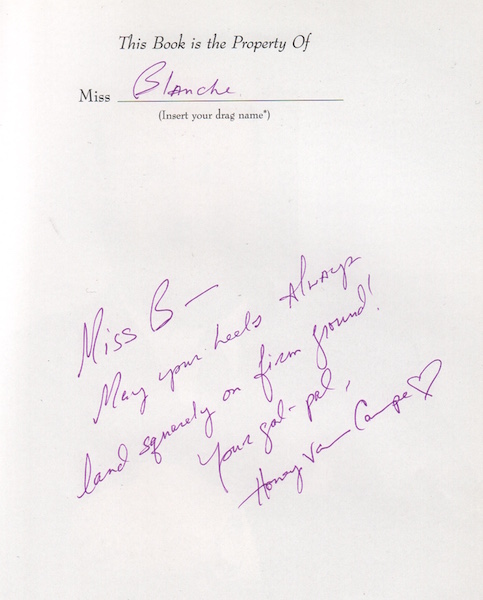 This Book is the Property Of
Miss Blanche
(Insert your drag name*)
Miss B—
May your heels Always
land squarely on firm ground!
Your gal-pal,
Honey Van Campe